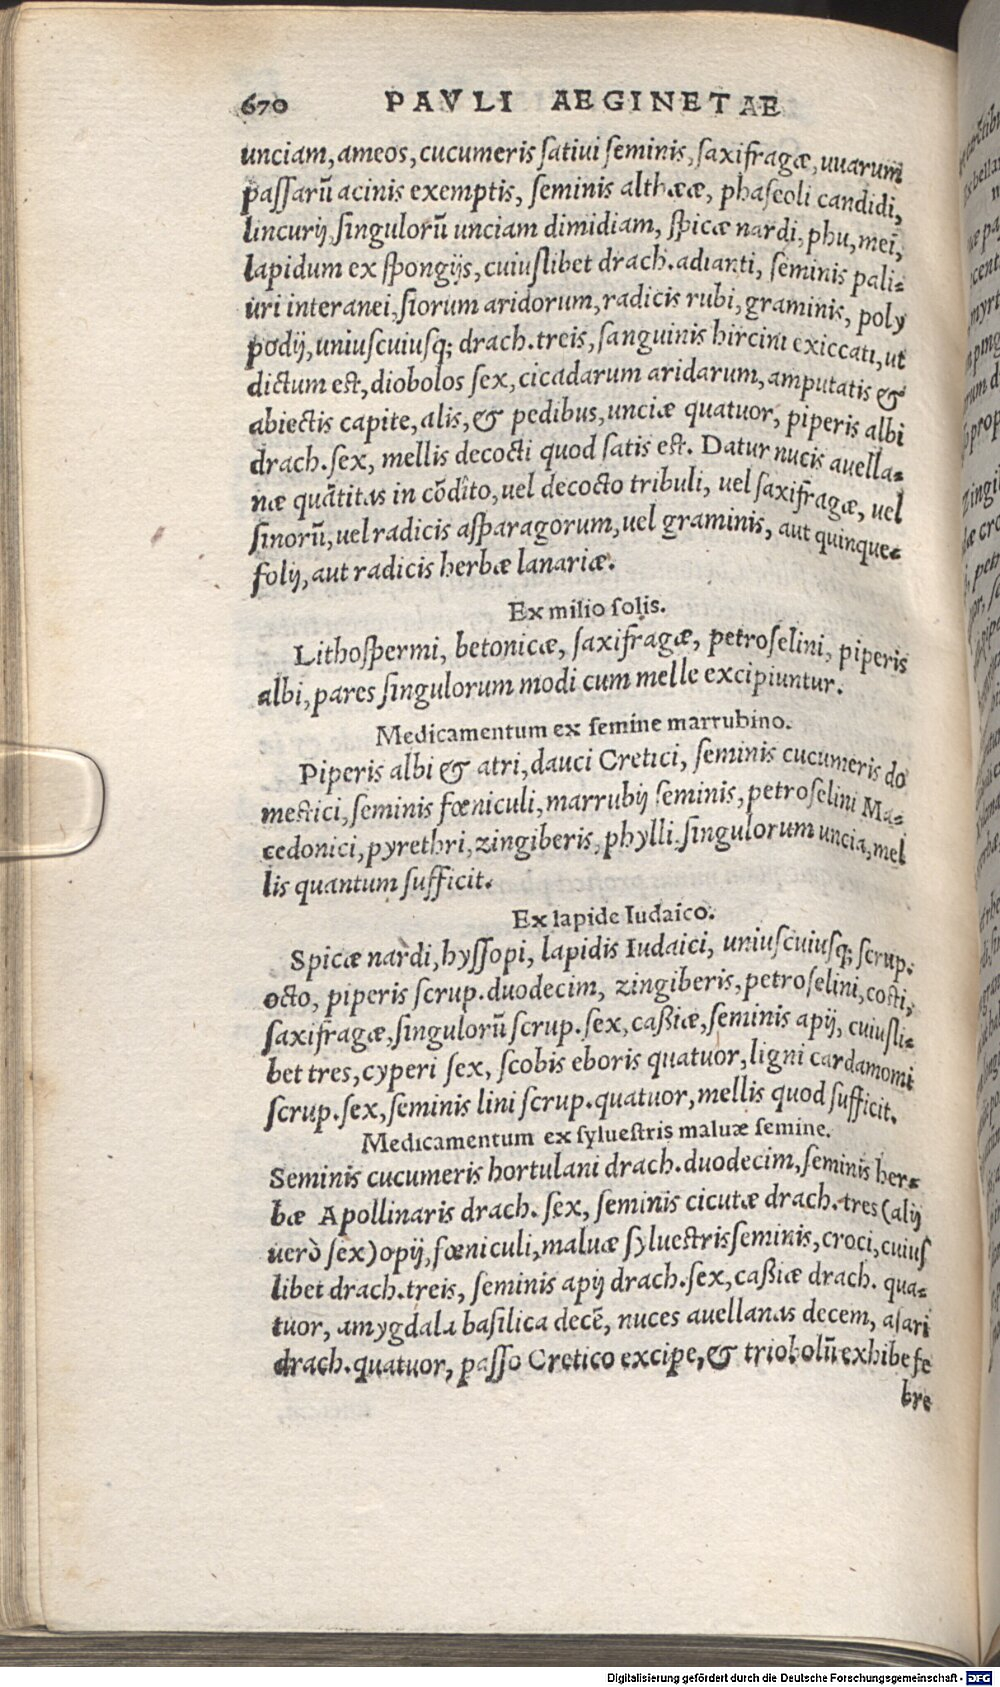 670 PAVLI AEGINETAE
unciam, ameos, cucumeris ſatiui ſeminis, ſaxifragæ, uuarum
paſſarũ acinis exemptis, ſeminis althææ, phaſeoli candidi,
lincurij, ſingulorũ unciam dimidiam, ſpicæ nardi, phu, mei,
lapidum ex ſpongijs, cuiuſlibet drach. adianti, ſeminis pali-
uri interanei, ſiorum aridorum, radicis rubi, graminis, poly
podij, uniuſcuiuſq; drach. treis, ſanguinis hircini exiccati, ut
dictum est, diobolos ſex, cicadarum aridarum, amputatis &
abiectis capite, alis, & pedibus, unciæ quatuor, piperis albi
drach. ſex, mellis decocti quod ſatis est. Datur nucis auella-
næ quãtitas in cõdito, uel decocto tribuli, uel ſaxifragæ, uel
ſinorũ, uel radicis aſparagorum, uel graminis, aut quinque-
folij, aut radicis herbæ lanariæ.
Ex milio ſolis.
Lithoſpermi, betonicæ, ſaxifragæ, petroſelini, piperis
albi, pares ſingulorum modi cum melle excipiuntur.
Medicamentum ex ſemine marrubino.
Piperis albi & atri, dauci Cretici, ſeminis cucumeris do
mestici, ſeminis fœniculi, marrubij ſeminis, petroſelini Ma-
cedonici, pyrethri, zingiberis, phylli, ſingulorum uncia, mel
lis quantum ſufficit.
Ex lapide Iudaico.
Spicæ nardi, hyſſopi, lapidis Iudaici, uniuſcuiuſq; ſcrup.
octo, piperis ſcrup. duodecim, zingiberis, petroſelini, costi,
ſaxifragæ, ſingulorũ ſcrup. ſex, caßiæ, ſeminis apij, cuiuſli-
bet tres, cyperi ſex, ſcobis eboris quatuor, ligni cardamomi
ſcrup. ſex, ſeminis lini ſcrup. quatuor, mellis quod ſufficit.
Medicamentum ex ſylueſtris maluæ ſemine.
Seminis cucumeris hortulani drach. duodecim, ſeminis her-
bæ Apollinaris drach. ſex, ſeminis cicutæ drach. tres (alij
uerò ſex) opij, fœniculi, maluæ ſylueſtris ſeminis, croci, cuiuſ
libet drach. treis, ſeminis apij drach. ſex, caßiæ drach. qua-
tuor, amygdala baſilica decẽ, nuces auellanas decem, aſari
drach. quatuor, paſſo Cretico excipe, & triobolũ exhibe fe
bre
Digitalisierung gefördert durch die Deutsche Forschungsgemeinschaft - DFG